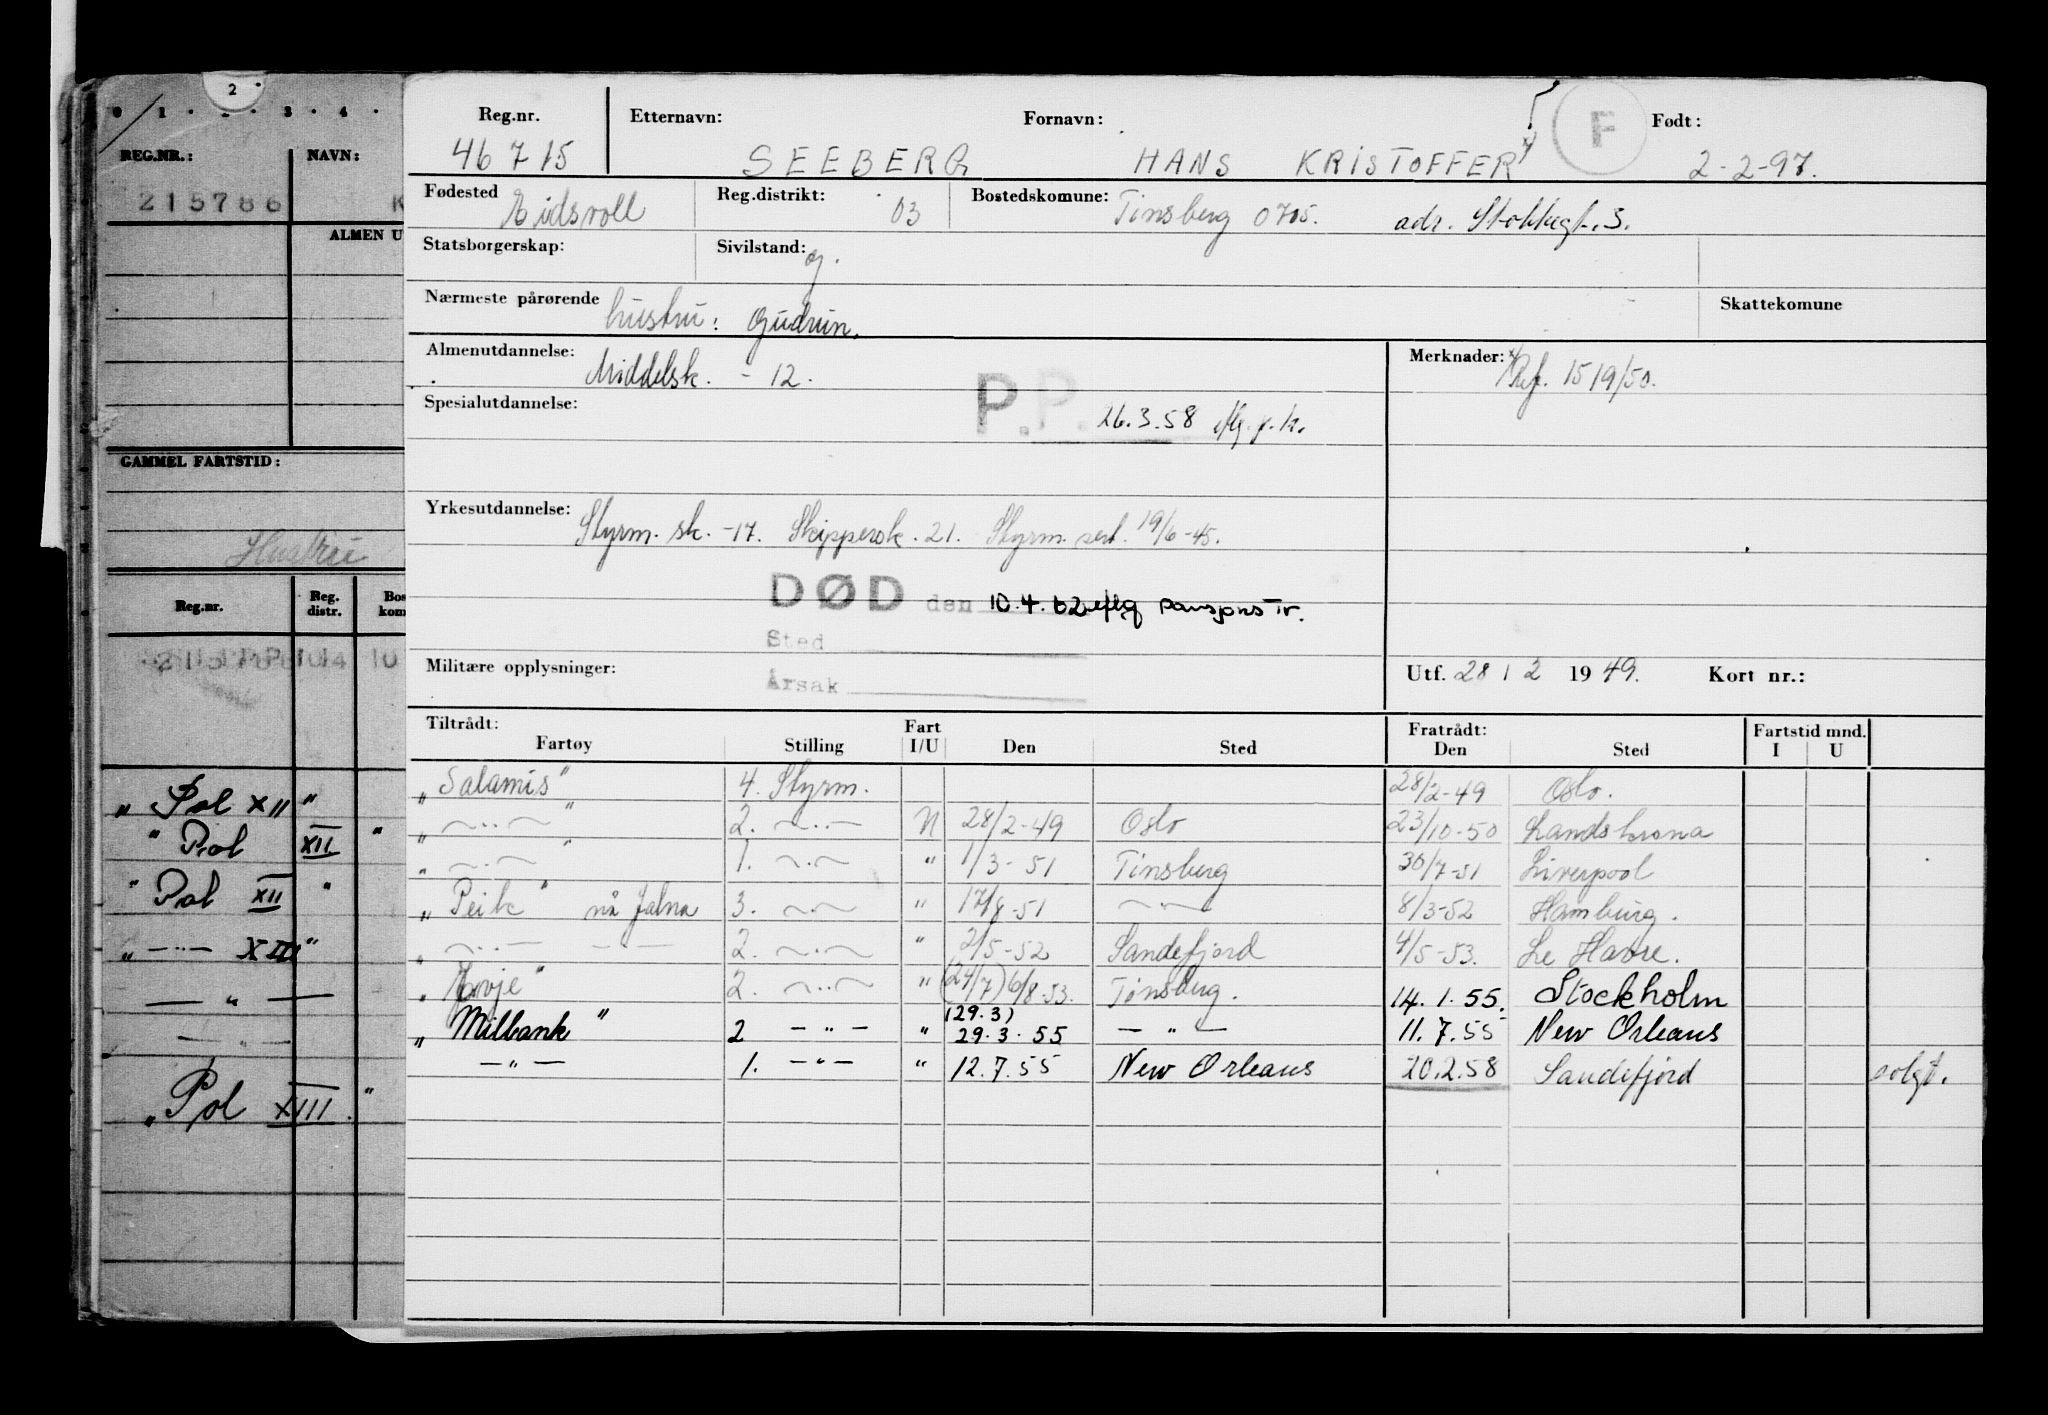 2
0 1 2 3 4
REG.NR.: NAVN:
215786 K
ALMEN U
GAMMEL FARTSTID:
Hustru
Reg.nr. Reg. distr. Bos kom
„ Pol XII "
" Pol XII "
" Pol XII "
„ —..— XIII "
— " —
— " —
„ Pol XIII. "
Reg.nr. Etternavn: Fornavn: F Født:
46 715 SEEBERG HANS KRISTOFFER x) 2-2-97.
Fødested Eidsvoll Reg.distrikt: 03 Bostedskomune: Tønsberg 0705. adr. Stokkegt. 3.
Statsborgerskap: Sivilstand: g.
Nærmeste pårørende hustru: Gudrun. Skattekomune
Almenutdannelse: Middelsk. - 12. Merknader: x) Ref. 1519/50.
Spesialutdannelse: P.P. 26.3.58 iflg. p.k.
Yrkesutdannelse: Styrm. sk. -17. Skippersk. 21. Styrm. sert. 19/6-45.
DØD den 10.4.62 iflg pensjonstr.
Sted
Militære opplysninger: Utf. 28 / 2 1949. Kort nr.:
Årsak
Tiltrådt: Fart Fratrådt: Fartstid mnd.
Fartøy Stilling I/U Den Sted Den Sted I U
„ Salamis" 4. Styrm. 28/2-49 Oslo.
„ —..— " 2. —..— U 28/2-49 Oslo 23/10-50 Landskrona
„ —..— " 1. —..— " 1/3-51 Tønsberg 30/7-51 Liverpool
„ Peik" nå Jalna 3. —..— " 17/8-51 —..— 8/3-52 Hamburg.
„ —..— — — 2. —..— " 2/5-52 Sandefjord 4/5-53. Le Havre.
„ Hovje" 2. —..— " (24/7) 6/8-53. Tønsberg. 14.1.55. Stockholm
(29.3)
„ Milbank" 2 — " — " 29.3.55 — " — 11.7.55 New Orleans
— " — 1. — " — " 12.7.55 New Orleans 20.2.58 Sandefjord solgt.